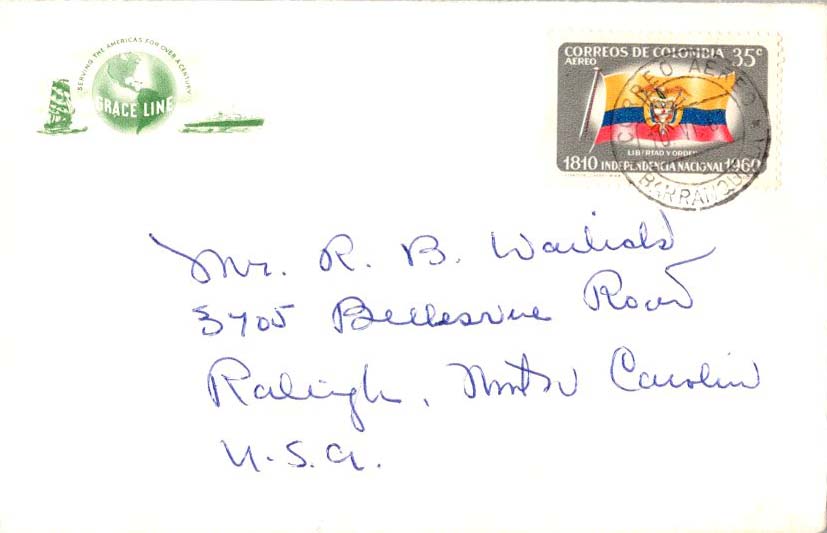 SERVING THE AMERICAS FOR OVER A CENTURY
GRACE LINE
CORREOS DE COLOMBIA 35c
AEREO
LIBERTAD Y ORDEN
1810 INDEPENDENCIA NACIONAL 1960
CORREO AEREO
BARRANQUILLA
Mr. R. B.
3705 Road
Raleigh, North Carolina
U.S.A.